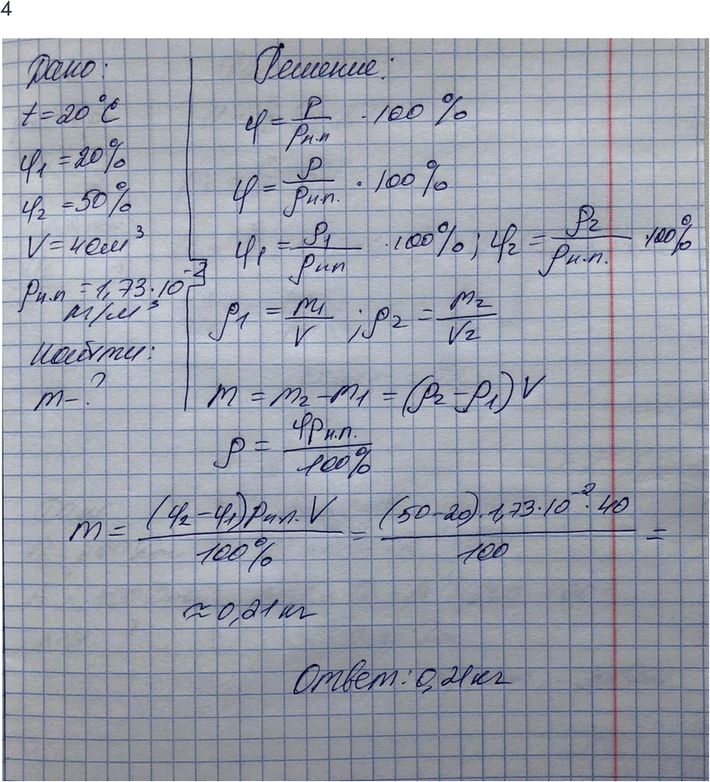 4
Дано:
t = 20°C
φ1 = 20%
φ2 = 50%
V = 40м³
ρн.п = 1,73·10⁻²
м/м³
Найти:
m – ?
Решение:
φ = P/Pн.п · 100%
φ = ρ/ρн.п. · 100%
φ1 = ρ1/ρнп · 100%; φ2 = ρ2/ρн.п. · 100%
ρ1 = m1/V ; ρ2 = m2/V2
m = m2 – m1 = (ρ2 – ρ1)V
ρ = φρн.п./100%
m = (φ2 – φ1)ρнп.V/100% = (50-20)·1,73·10⁻²·40/100 =
≈ 0,21кг
Ответ: 0,21кг